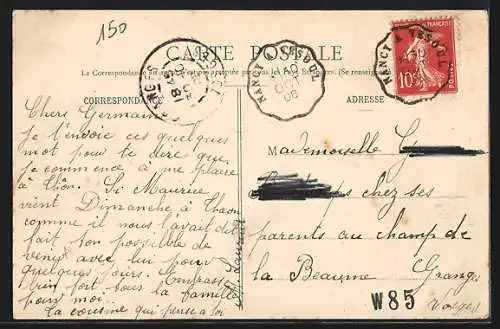 150
CARTE POSTALE
La Correspondance au recto n'est pas acceptée par tous les Pays Étrangers. (Se renseigner
CORRESPONDANCE
ADRESSE
NANCY A VESOUL
NANCY A VESOUL
10c
POSTES
Chers Germaine
Je t'envoie ces quelques
mot pour te dire que
je commence a me plaire
à Thôn. Si Maurice
vient Dimanche à Thaon
comme il nous l'avait dit
fait ton possible de
venir avec lui pour
quelques jours. Embrasse
bien fort tous la famille
pour moi.
La cousine qui pense a toi
Mademoiselle G
chez ses
parents au champ de
la Beaume Granges
Vosges
W85